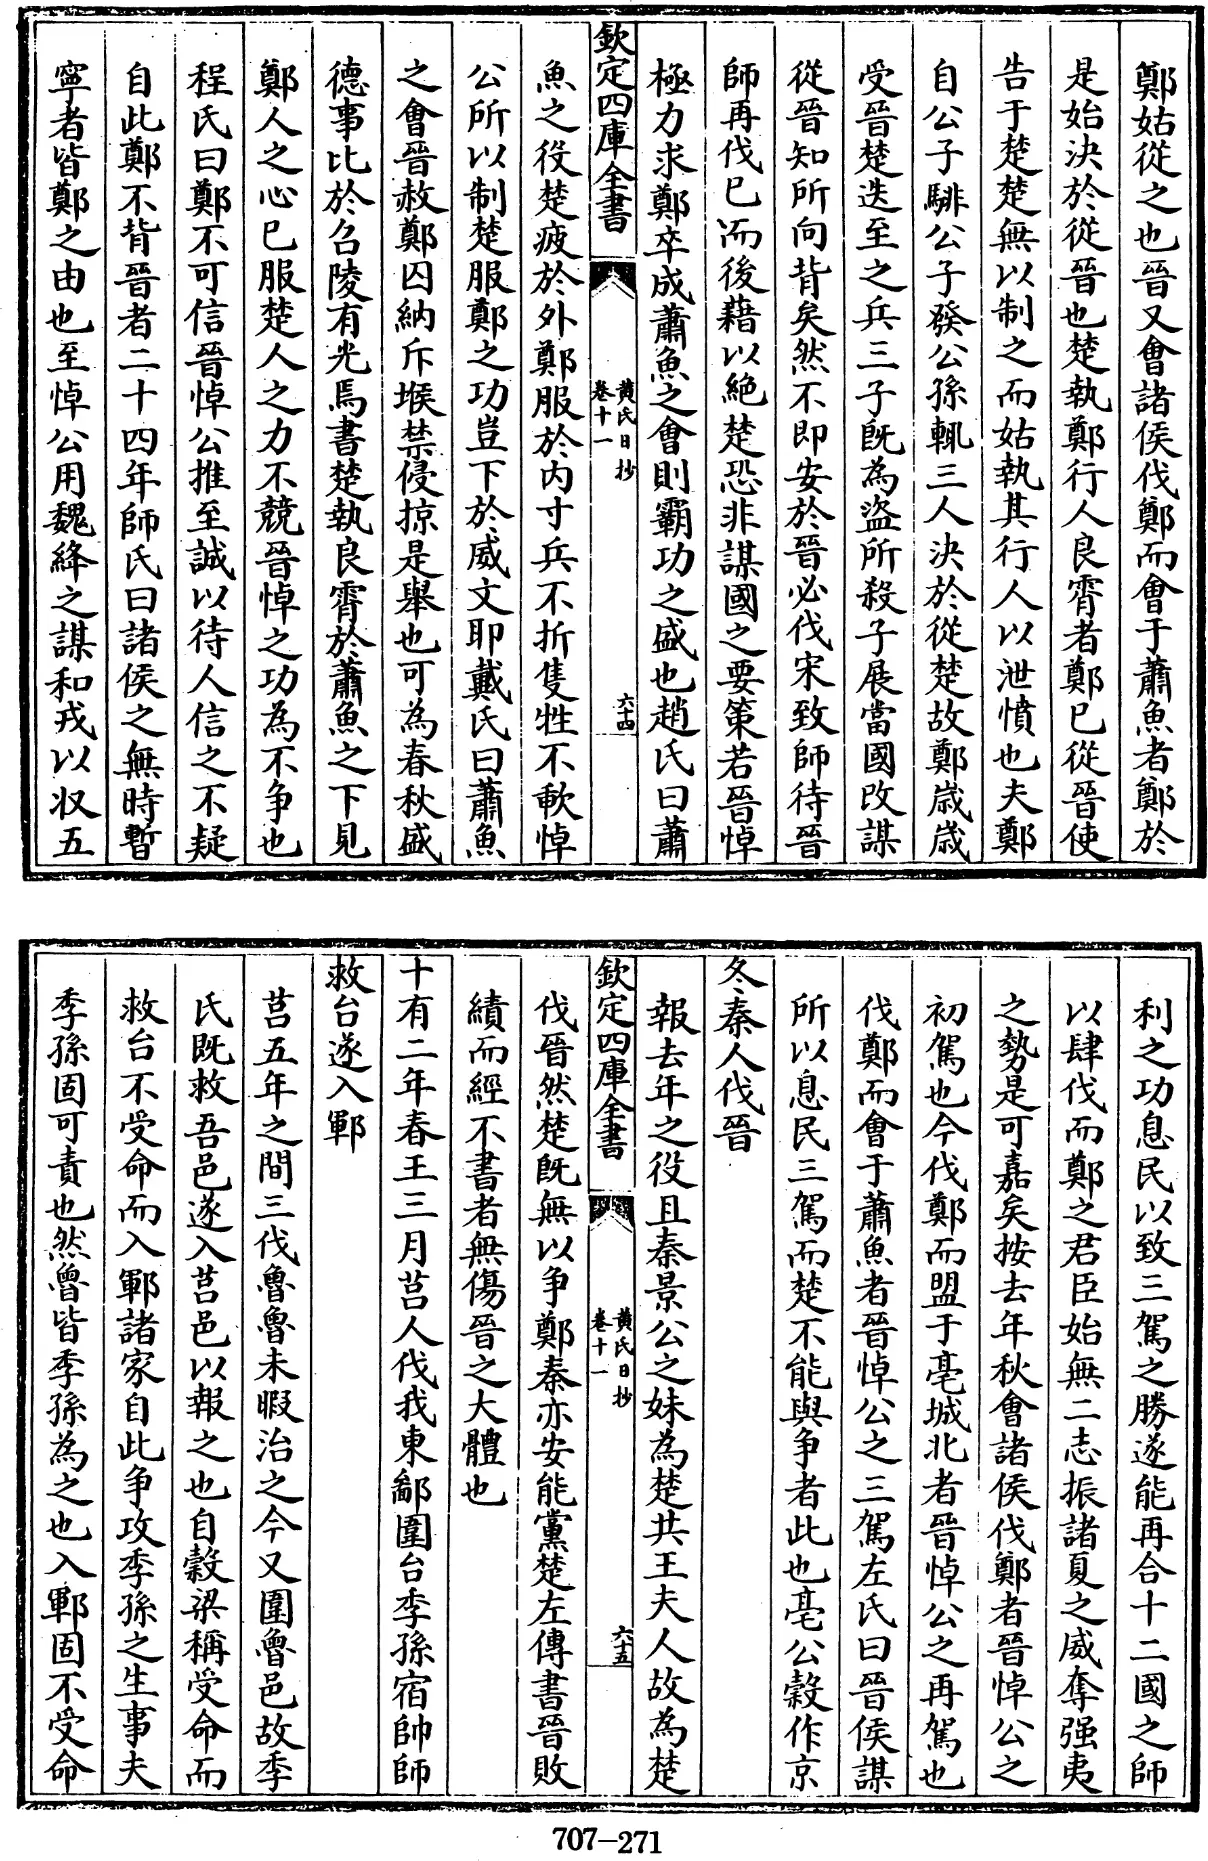 鄭姑從之也晉又會諸侯伐鄭而會于蕭魚者鄭於
是始決於從晉也楚執鄭行人良霄者鄭已從晉使
告于楚楚無以制之而姑執其行人以泄憤也夫鄭
自公子騑公子發公孫輒三人決於從楚故鄭歲歲
受晉楚迭至之兵三子既為盜所殺子展當國改謀
從晉知所向背矣然不即安於晉必伐宋致師待晉
師再伐已而後藉以絶楚恐非謀國之要策若晉悼
極力求鄭卒成蕭魚之會則霸功之盛也趙氏曰蕭
欽定四庫全書
黄氏日抄
卷十一
六十四
魚之役楚疲於外鄭服於内寸兵不折隻牲不軟悼
公所以制楚服鄭之功豈下於威文耶戴氏曰蕭魚
之會晉赦鄭囚納斥堠禁侵掠是舉也可為春秋盛
德事比於召陵有光焉書楚執良霄於蕭魚之下見
鄭人之心已服楚人之力不競晉悼之功為不争也
程氏曰鄭不可信晉悼公推至誠以待人信之不疑
自此鄭不背晉者二十四年師氏曰諸侯之無時暫
寧者皆鄭之由也至悼公用魏絳之謀和戎以收五
利之功息民以致三駕之勝遂能再合十二國之師
以肆伐而鄭之君臣始無二志振諸夏之威奪强夷
之勢是可嘉矣按去年秋會諸侯伐鄭者晉悼公之
初駕也今伐鄭而盟于亳城北者晉悼公之再駕也
伐鄭而會于蕭魚者晉悼公之三駕左氏曰晉侯謀
所以息民三駕而楚不能與争者此也亳公穀作京
冬秦人伐晉
報去年之役且秦景公之妹為楚共王夫人故為楚
欽定四庫全書
黄氏日抄
卷十一
六十五
伐晉然楚既無以争鄭秦亦安能黨楚左傳書晉敗
績而經不書者無傷晉之大體也
十有二年春王三月莒人伐我東鄙圍台季孫宿帥師
救台遂入鄆
莒五年之間三伐魯魯未暇治之今又圍魯邑故季
氏既救吾邑遂入莒邑以報之也自穀梁稱受命而
救台不受命而入鄆諸家自此争攻季孫之生事夫
季孫固可責也然魯皆季孫為之也入鄆固不受命
707-271